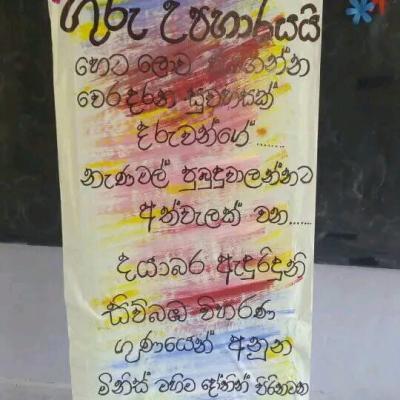 ගුරු උපහාරයයි
හෙට ලොව දිනගන්න
වෙරදරන සුවහසක්
දරුවන්ගේ.......
නැණවල් පුබුදුවාලන්නට
අත්වැලක් වන....
දයාබර ඇදුරිඳුනි
සිව්බඹ විහරණ
ගුණයෙන් අනූන
මිනිස් මහිම දෝතින් පිරිනමන